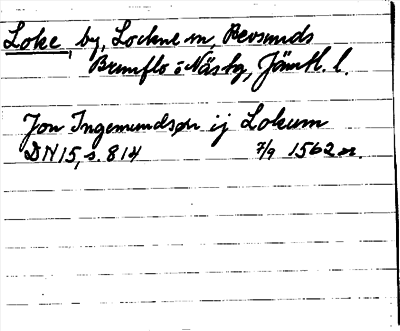 Loke, by, Lockne sn, Revsunds
Brunflo o Näs tg, Jämtl. l.
Jon Ingemundsøn ij Lokum
DN 15, s. 814 7/9 1562 or.